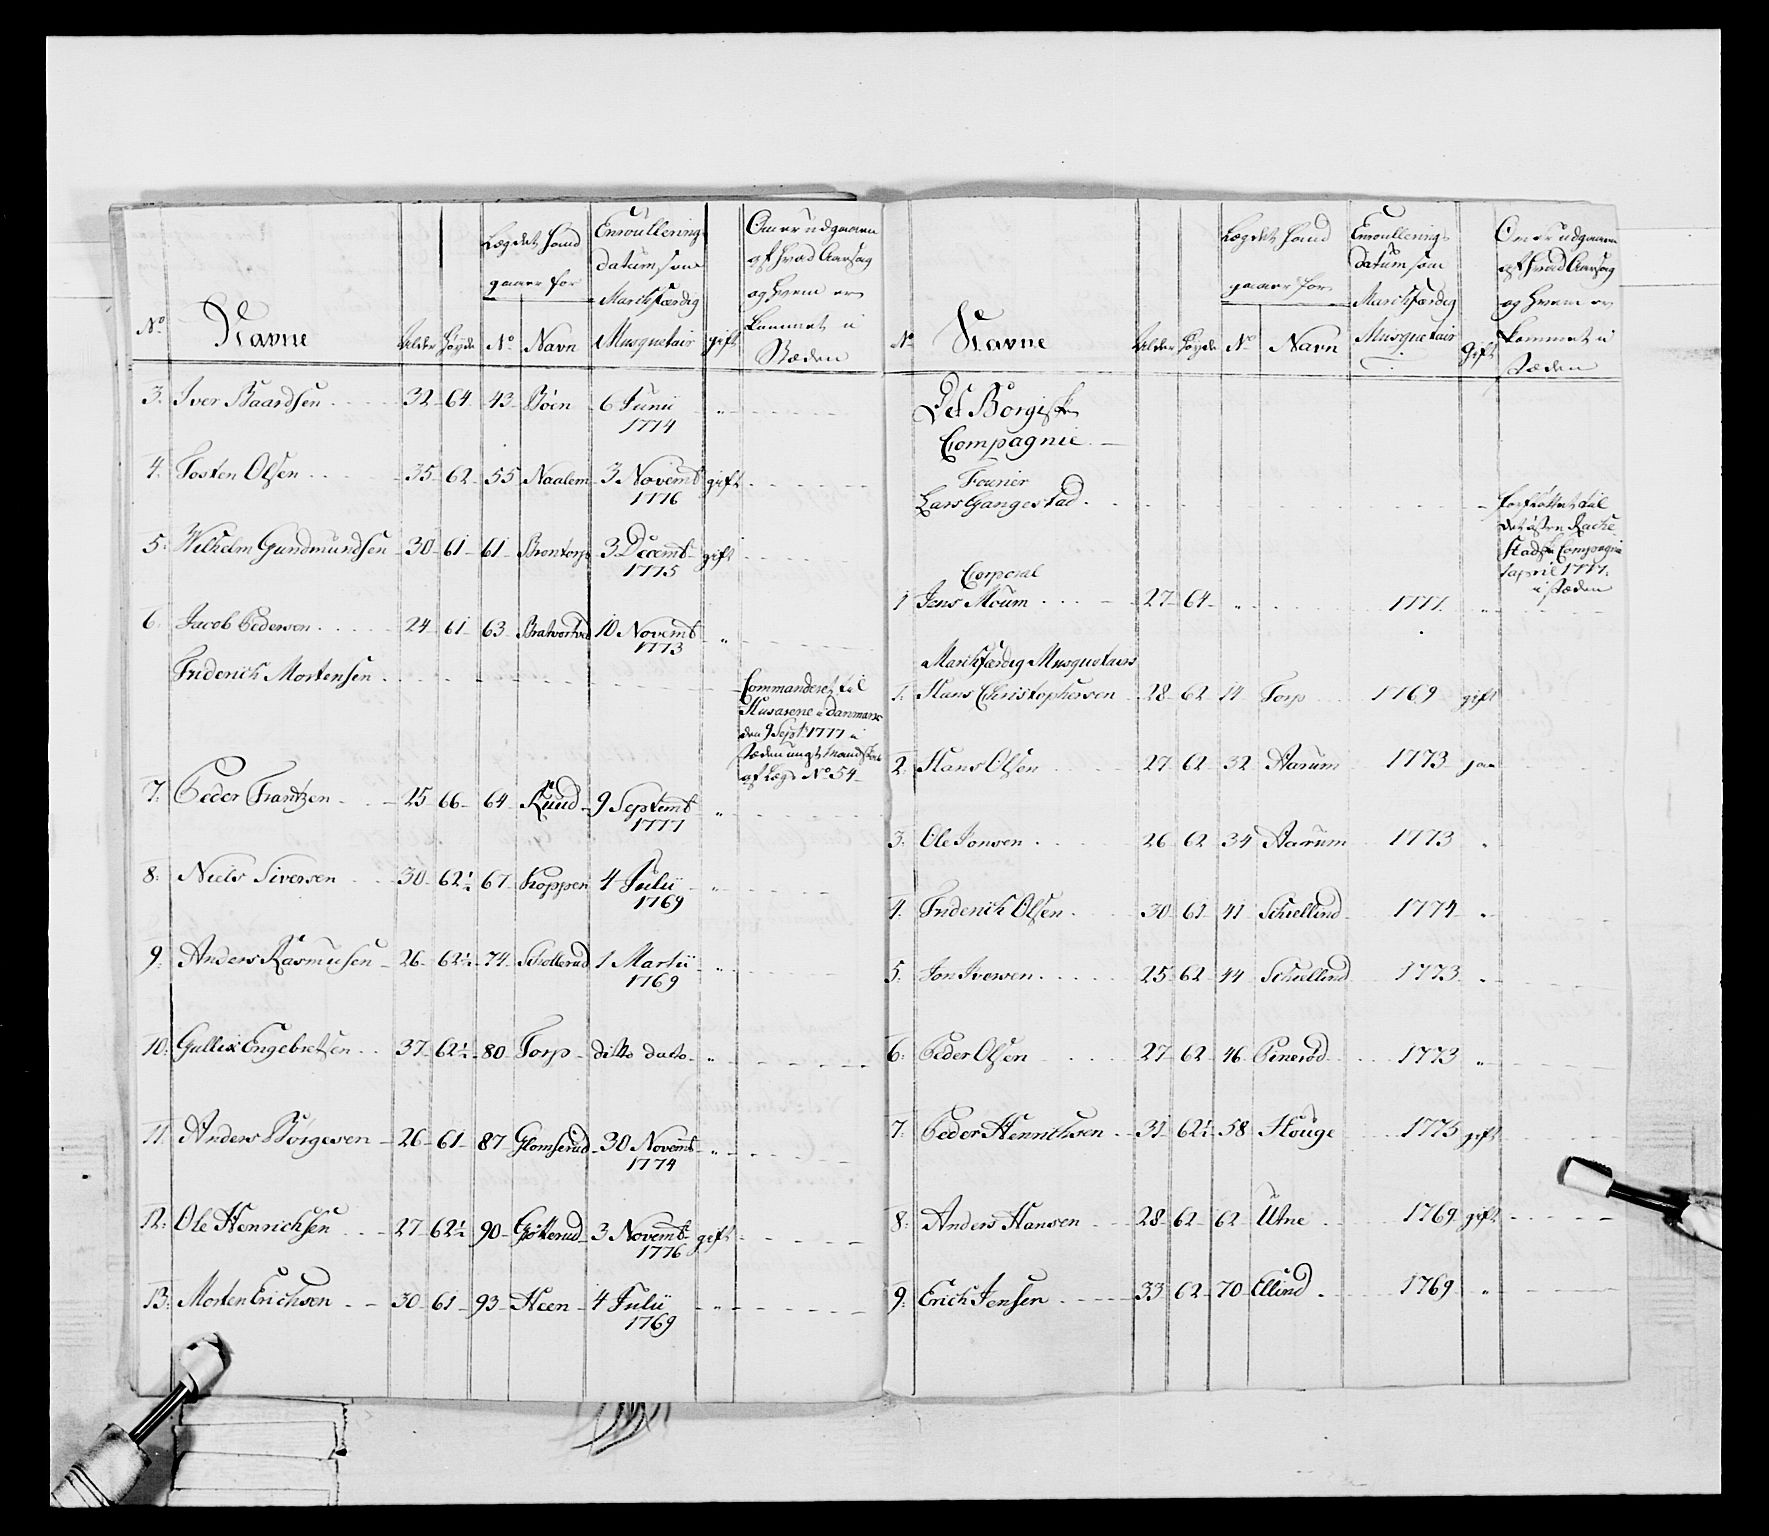 No Navne Alder Høyde Lægdet hand gaaer for No Navn Enroullerings datum som Marchfærdig Musquetair gift Om er udgaaen af hvad Aarsag og hvem er kommet i Stæden
3. Iver Baardsen 32 64 43 Böen 6 Junii 1774 "
4. Tosten Olsen 35 62 55 Naalem 3 Novemb 1776 gift
5. Wilhelm Gundmundsen 30 61 61 Brontorp 3 Decemb 1775 gift
6. Jacob Pedersen 24 61 63 10 Novemb 1773 "
Friderich Mortensen Commanderet til
Husarene i Danmark
den 9 Sept: 1777 i
stæden ungt Mandskab
af Læg No 54
7. Peder Frantzen 25 66 64 Ruud 9 Septemb 1777 "
8. Niels Siversen 30 62½ 67 Koppen 4 Julii 1769 "
9. Anders Rasmusen 26 62½ 74 Skotterud 1 Martii 1769 "
10. Gullix Engebretsen 37 62½ 80 Torp ditto dato "
11. Anders Börgesen 26 61 87 Glomserud 30 Novemb 1774 "
12. Ole Henrichsen 27 62½ 90 Götterud 3 Novemb 1776 gift
13. Morten Erichsen 30 61 93 Heen 4 Julii 1769 "
No Navne Alder Høyde Lægdet hand gaaer for No Navn Enroullerings datum som Marchfærdig Musquetair Gift Om er udgaaen af hvad Aarsag og hvem er kommet i Stæden
Det Borgiske
Compagnie
Fourier
Lars Gangestad forflöttet til
det
Compagnie
1 april 1777.
i stæden
Corporal
1 Jens Moum 27 64 " 1777 "
Marchfærdig Musquetairs
1. Hans Christophersen 28 62 14 Torp 1769 gift
2. Hans Olsen 27 62 32 Aarum 1773
3. Ole Jonsen 26 62 34 Aarum 1773 "
4. Friderich Olsen 30 61 41 Schiellind 1774 "
5. Jon Iversen 25 62 44 Schiellind 1773 "
6. Peder Olsen 27 62 46 Pineröd 1773 "
7. Peder Henrichsen 31 62½ 58 Houge 1775 gift
8. Anders Hansen 28 62 62 Utne 1769 gift
9. Erich Jensen 33 62 70 Ellind 1769 "